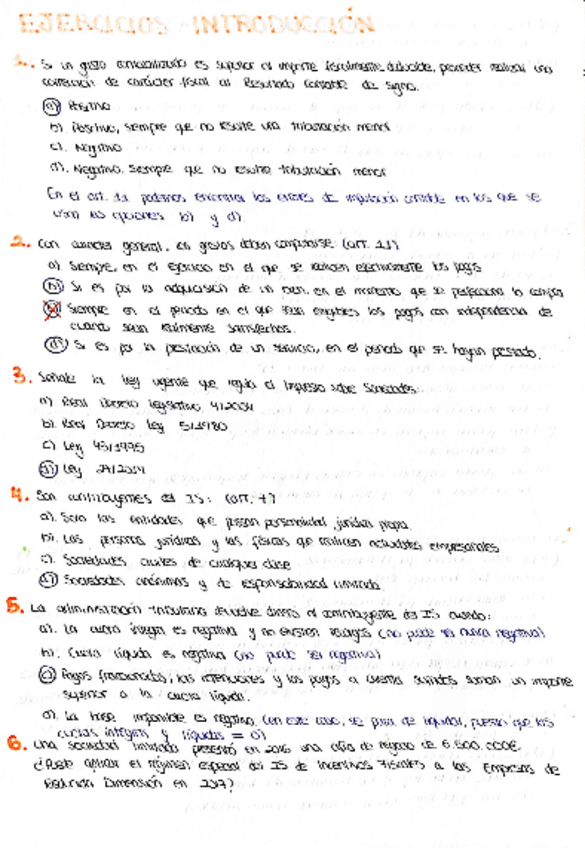 EJERCICIOS INTRODUCCIÓN
1. Si un gasto contabilizado es superior al importe fiscalmente deducible, proceder realizar una
corrección de carácter fiscal al Resultado Contable de signo.
a) Positivo
b) Positivo, siempre que no resulte una tributación menor
c) Negativo
d) Negativo, siempre que no resulte tributación menor
En el art. 11 podemos encontrar los errores de imputación contable en los que se
usan las opciones b) y d).
2. Con carácter general, los gastos deben computarse: (art. 11)
a) Siempre, en el ejercicio en el que se realicen efectivamente los pagos
b) Si es por la adquisición de un bien, en el momento que se perfecciona la compra
c) Siempre en el periodo en el que sean exigibles los pagos con independencia de
cuando sean realmente satisfechos.
d) Si es por la prestación de un servicio, en el periodo que se hayan prestado.
3. Señale la ley vigente que regula el Impuesto sobre Sociedades:
a) Real Decreto legislativo, 4/2004
b) Real Decreto Ley 5/1980
c) Ley 43/1995
d) Ley 27/2014
4. Son contribuyentes del IS: (art. 7)
a) Solo las entidades que posean personalidad jurídica propia.
b) Las personas jurídicas y las físicas que realicen actividades empresariales
c) Sociedades civiles de cualquier clase
d) Sociedades anónimas y de responsabilidad limitada
5. La administración tributaria devuelve dinero al contribuyente del IS cuando:
a) La cuota íntegra es negativa y no existen recargos (no puede ser nunca negativa)
b) Cuota líquida es negativa (no puede ser negativa)
c) Pagos fraccionados, las retenciones y los pagos a cuenta suman un importe
superior a la cuota líquida.
d) La base imponible es negativa. (en este caso, se para de liquidar, puesto que las
cuotas íntegras y líquidas = 0)
6. Una sociedad limitada presentó en 2016 una cifra de negocio de 6.500.000€
¿Puede aplicar el régimen especial del IS de Incentivos Fiscales a las Empresas de
Reducida Dimensión en 2017?